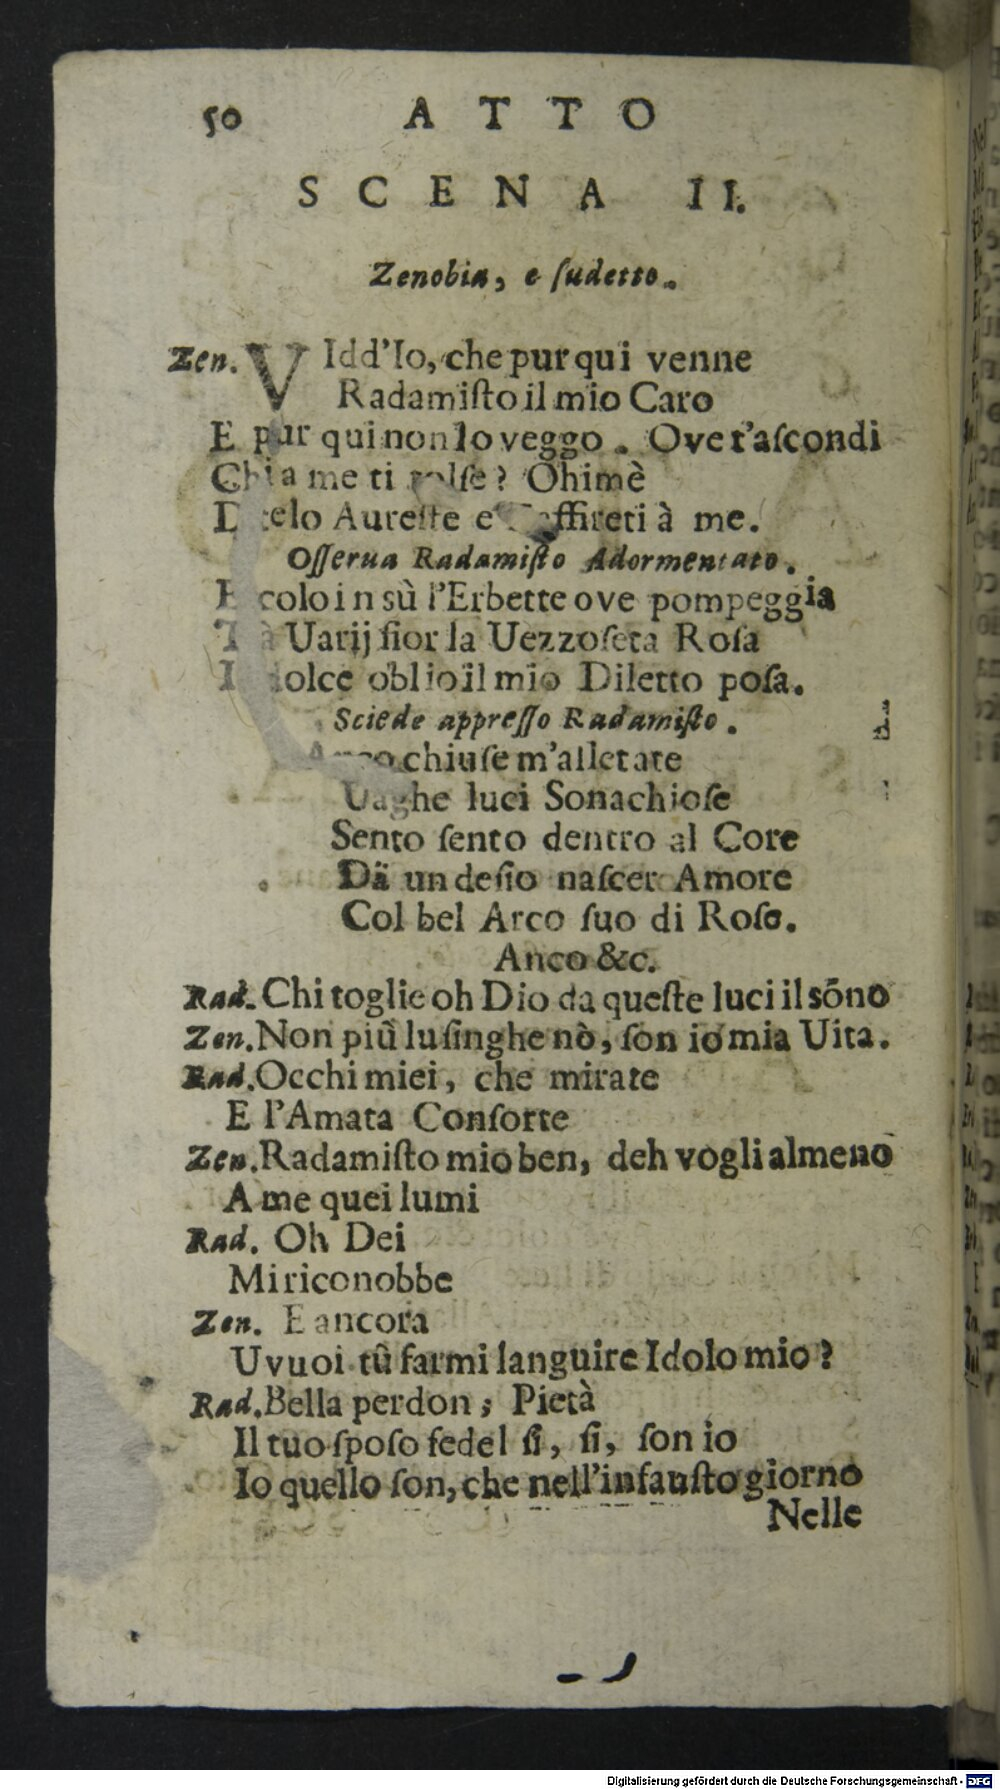 50 ATTO
SCENA II.
Zenobia, e ſudetto.
Zen. VIdd'Io, che pur qui venne
Radamiſto il mio Caro
E pur qui non lo veggo. Ove t'aſcondi
Chi a me ti tolſe? Ohimè
elo Aureſte e ffireti à me.
Oſſerua Radamiſto Adormentato.
E colo in sù l'Erbette ove pompeggia
T à Uarij fior la Uezzoſeta Roſa
I dolce oblio il mio Diletto poſa.
Sciede appreſſo Radamiſto.
Anco chiuſe m'alletate
Uaghe luci Sonachioſe
Sento ſento dentro al Core
Dà un deſio naſcer Amore
Col bel Arco ſuo di Roſe.
Anco &c.
Rad. Chi toglie oh Dio da queſte luci il sōno
Zen. Non più luſinghe nò, ſon io mia Uita.
Rad. Occhi miei, che mirate
E l'Amata Conſorte
Zen. Radamiſto mio ben, deh vogli almeno
A me quei lumi
Rad. Oh Dei
Mi riconobbe
Zen. E ancora
Uvuoi tû farmi languire Idolo mio?
Rad. Bella perdon; Pietà
Il tuo ſpoſo fedel sî, sì, ſon io
Io quello ſon, che nell'infauſto giorno
Nelle
Digitalisierung gefördert durch die Deutsche Forschungsgemeinschaft - DFG